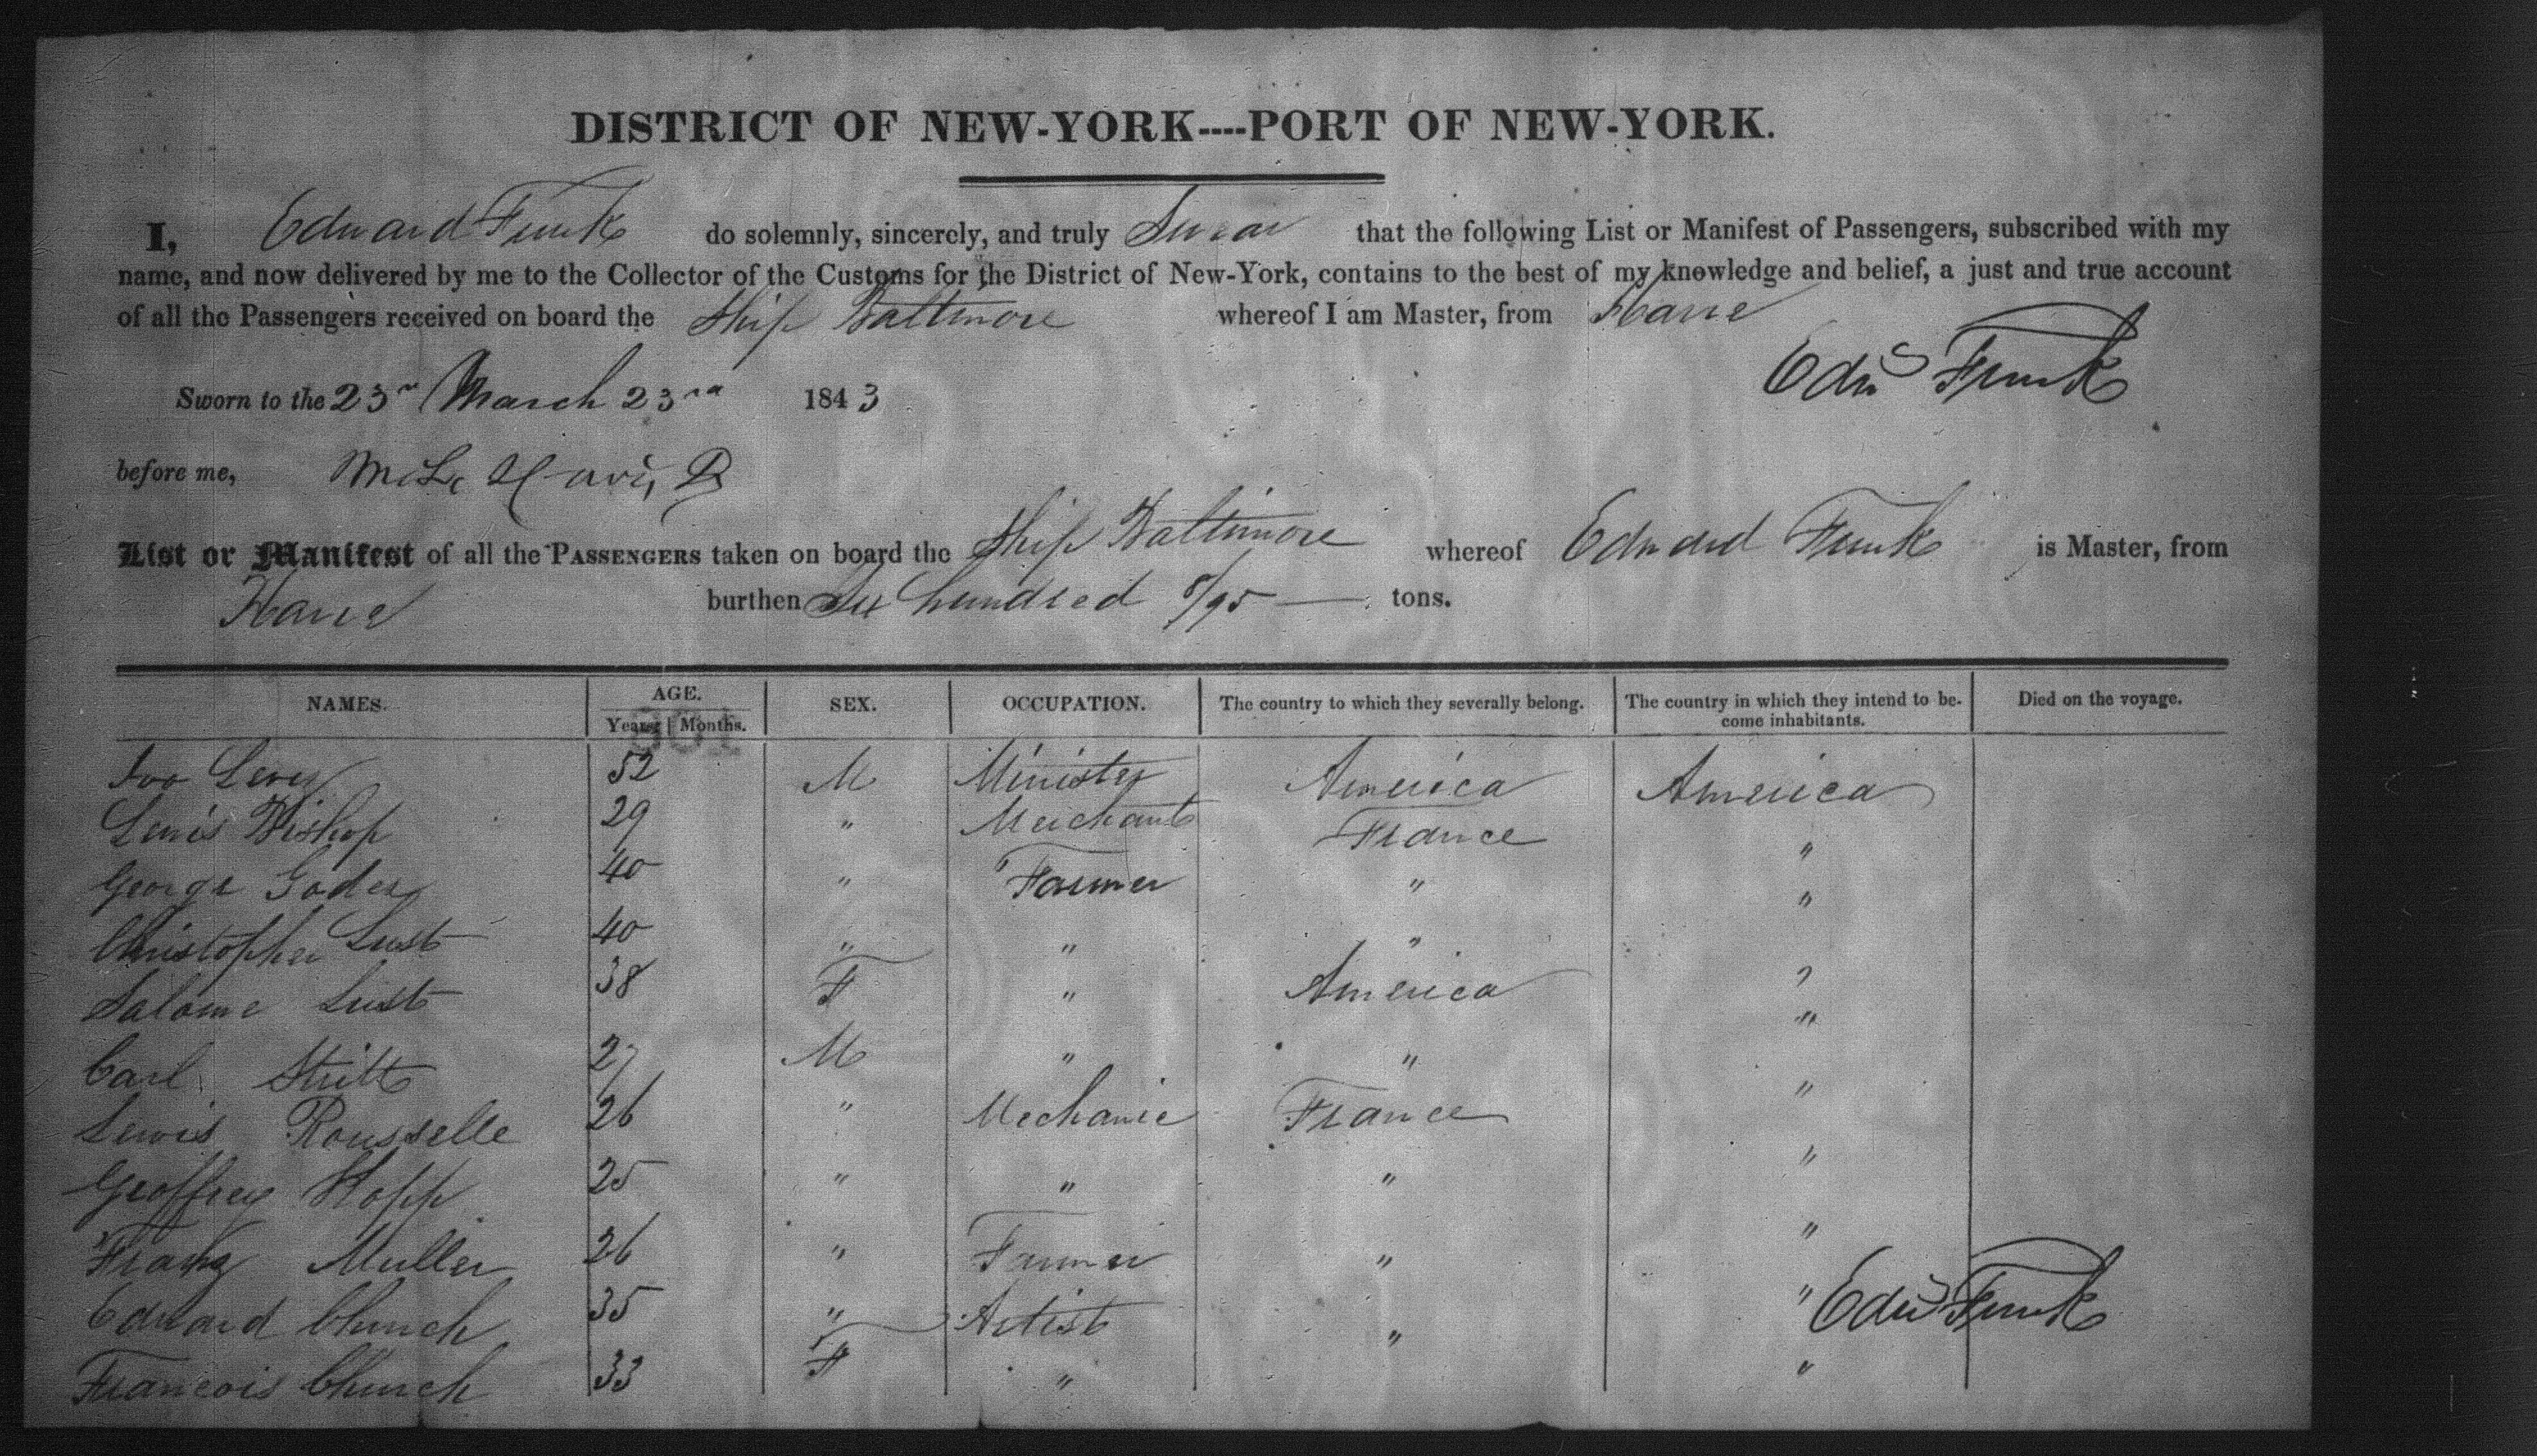 DISTRICT OF NEW-YORK----PORT OF NEW-YORK.
I, Edward Funk do solemnly, sincerely, and truly Swear that the following List or Manifest of Passengers, subscribed with my
name, and now delivered by me to the Collector of the Customs for the District of New-York, contains to the best of my knowledge and belief, a just and true account
of all the Passengers received on board the Ship Baltimore whereof I am Master, from Havre
Edwd Funk
Sworn to the 23rd March 23rd 1843
before me,
List or Manifest of all the PASSENGERS taken on board the Ship Baltimore whereof Edward Funk is Master, from
Havre burthen Six hundred 8/95 — tons.
NAMES. AGE. SEX. OCCUPATION. The country to which they severally belong. The country in which they intend to be- Died on the voyage.
Years | Months. come inhabitants.
52 M Minister America America
Lewis Bishop 29 " Merchant France "
George 40 " Farmer " "
Christopher Lust 40 " " " "
Salome Lust 38 F " America "
Carl 27 M " " "
Lewis Rousselle 26 " Mechanic France "
Geoffrey Hopp 25 " " " "
Franz Muller 26 " Farmer " "
Edward Church 35 " Artist " "
Edwd Funk
Francois Church 33 F " "